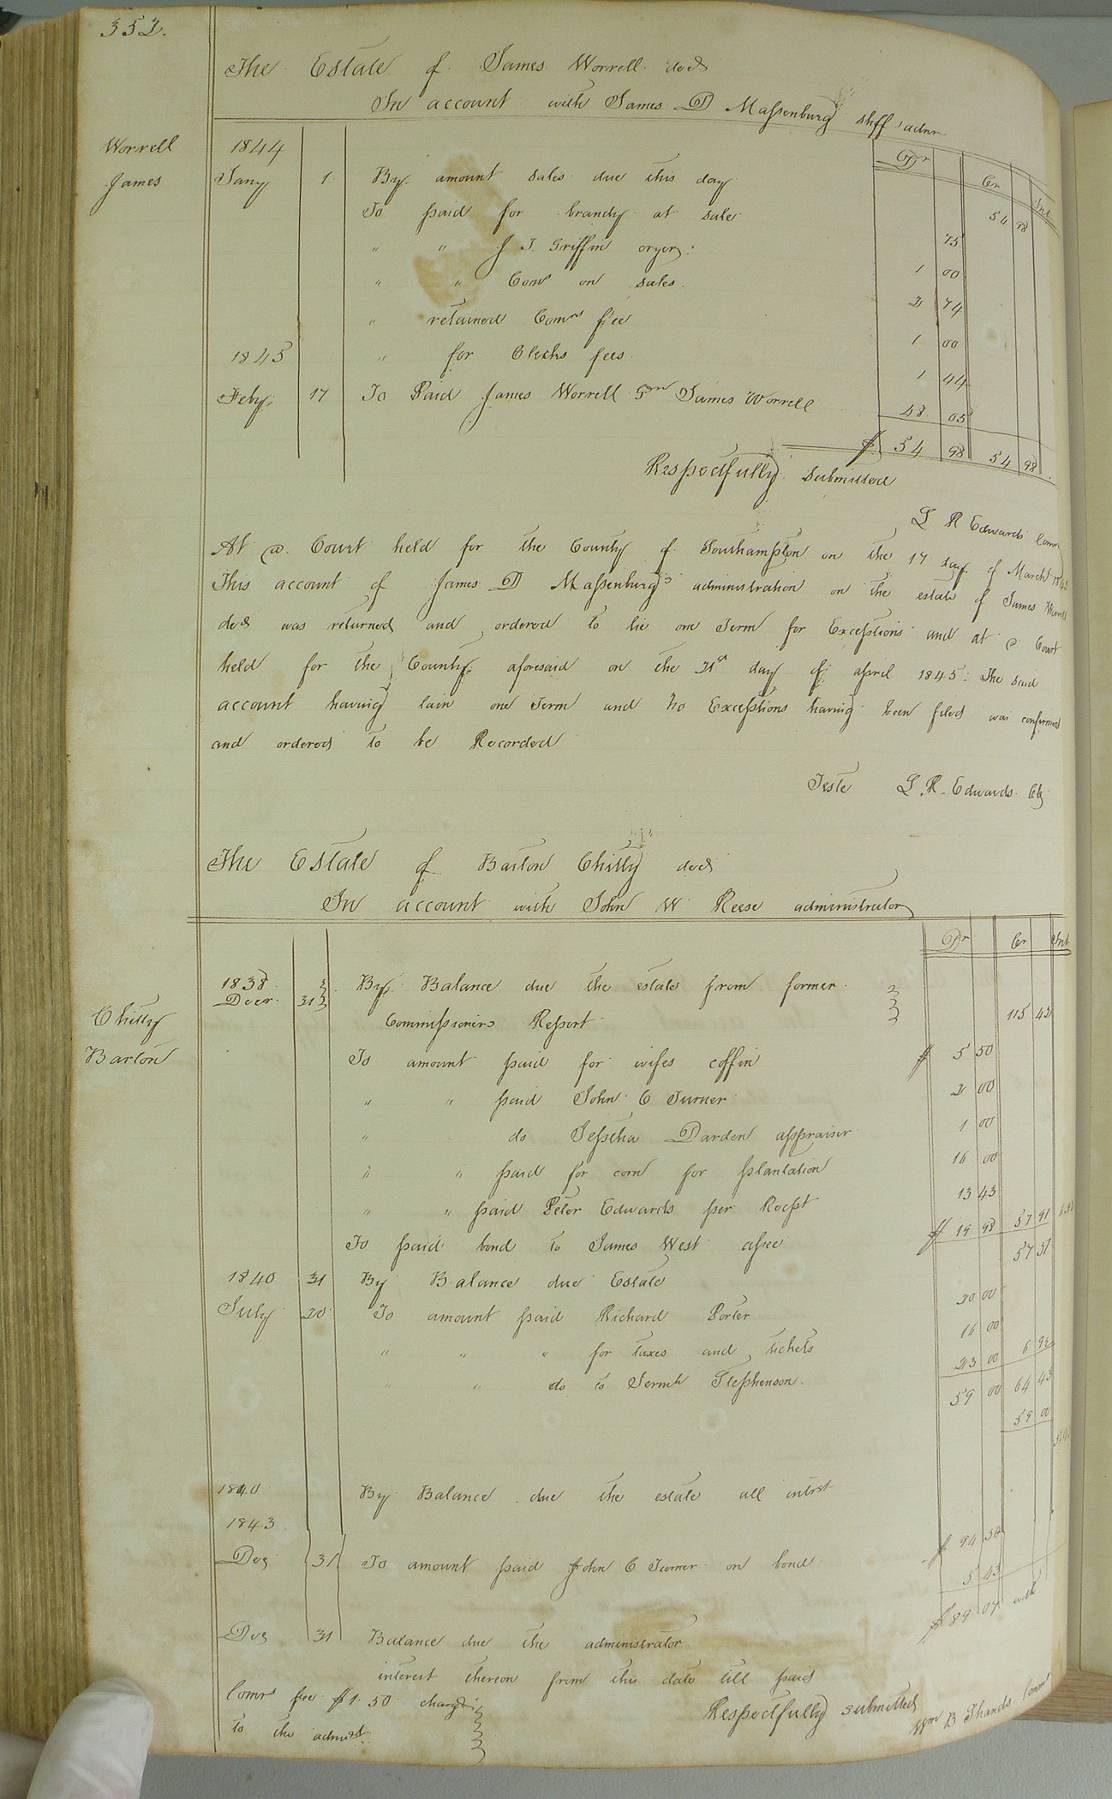 352.
The Estate of James Worrell decd
In account with James D Massenburg shff & admr
Worrell
James
Dr Cr Int
1844
Jany 1 By amount sales due this day 54 98
To paid for brandy at sale 75
" " J T Griffin cryer 1 00
" " Coms on sales 2 74
" retained Comrs fee 1 00
1845 " for Clerks fees 1 44
Feby 17 To Paid James Worrell Gdn James Worrell 48 05
$ 54 98 54 98
Respectfully Submitted
L R Edwards Comr
At a Court held for the County of Southampton on the 17 day of March 1845
This account of James D Massenburg's administration on the estate of James Worrell
decd was returned and ordered to lie one Term for Exceptions and at a Court
held for the County aforesaid on the 21st day of april 1845: The said
account having lain one Term and no Exceptions having been filed was confirmed
and ordered to be Recorded
Teste L. R. Edwards Clk
The Estate of Barton Chitty decd
In account with John W Reese administrator
Dr Cr Int
Chitty
Barton
1838
Decr 31 By Balance due the estate from former
Commissioners Report 115 42
To amount paid for wifes coffin $ 5 50
" " paid John C Turner 2 00
" do Darden appraiser 1 00
" " paid for corn for plantation 16 00
" " paid Peter Edwards per Recpt 13 43
To paid bond to James West assee $ 19 98 57 91
57 51
1840 31 By Balance due Estate
July 20 To amount paid Richard Porter 20 00
" " " for taxes and tickets 16 00
" do to Stephenson 23 00 6 92
59 00 64 43
59 00
1840 By Balance due the estate all intrst
1843
Dec 31 To amount paid John C Turner on bond $ 94 50
5 43
Dec 31 Balance due the administrator $ 89 07 with
interest thereon from this date till paid
Comrs fee $1.50 charged
to the admr
Respectfully submitted
Wm B Shands Comr